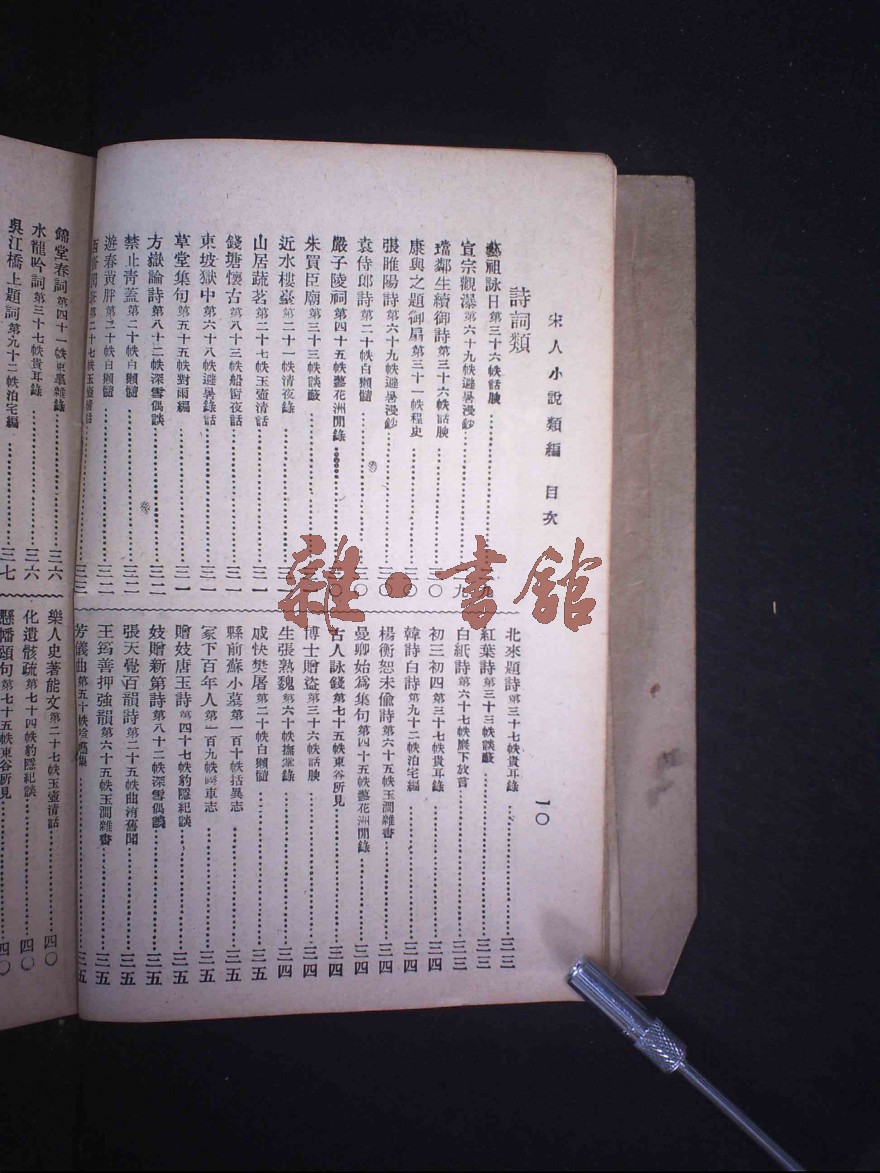 宋人小說類編 目次
一〇
詩詞類
藝祖詠日第三十六帙話腴
宣宗觀瀑第六十九帙避暑漫鈔
璫鄰生續御詩第三十六帙話腴
康與之題御扇第三十一帙程史
張睢陽詩第六十九帙避暑漫鈔
袁侍郎詩第二十帙白獺髓
嚴子陵祠第四十五帙藝花洲閒錄
朱買臣廟第三十三帙談藪
近水樓臺第二十一帙清夜錄
山居蔬茗第二十七帙玉壺清話
錢塘懷古第八十三帙船窗夜話
東坡獄中第六十八帙避暑錄話
草堂集句第五十五帙對雨編
方嶽論詩第八十二帙深雪偶談
禁止青蓋第二十帙白獺髓
遊春黃胖第二十帙白獺髓
第二十七帙玉壺清話
北來題詩第三十七帙貴耳錄 三三
紅葉詩第三十三帙談藪 三三
白紙詩第六十七帙巖下放言 三三
初三初四第三十七帙貴耳錄 三四
韓詩白詩第九十二帙泊宅編 三四
楊衡恕未偷詩第六十五帙玉澗雜書 三四
曼卿始爲集句第四十五帙藝花洲閒錄 三四
古人詠錢第七十五帙東谷所見 三四
博士贈盜第三十六帙話腴 三四
生張熟魏第六十帙撫掌錄 三四
戚快樊屠第二十帙白獺髓 三五
縣前蘇小墓第一百十帙括異志 三五
冢下百年人第一百九帙睽車志 三五
贈妓唐玉詩第四十七帙豹隱紀談 三五
妓贈新第詩第八十二帙深雪偶談 三五
張天覺百韻詩第二十五帙曲洧舊聞 三五
王筠善押強韻第六十五帙玉澗雜書 三五
芳儀曲第五十帙 三五
錦堂春詞第四十一帙 三六
水龍吟詞第三十七帙貴耳錄 三六
吳江橋上題詞第九十二帙泊宅編 三七
樂人史著能文第二十七帙玉壺清話 四〇
化遺骸疏第七十四帙豹隱紀談 四〇
懸幡題句第七十五帙東谷所見 四〇
雜·書館